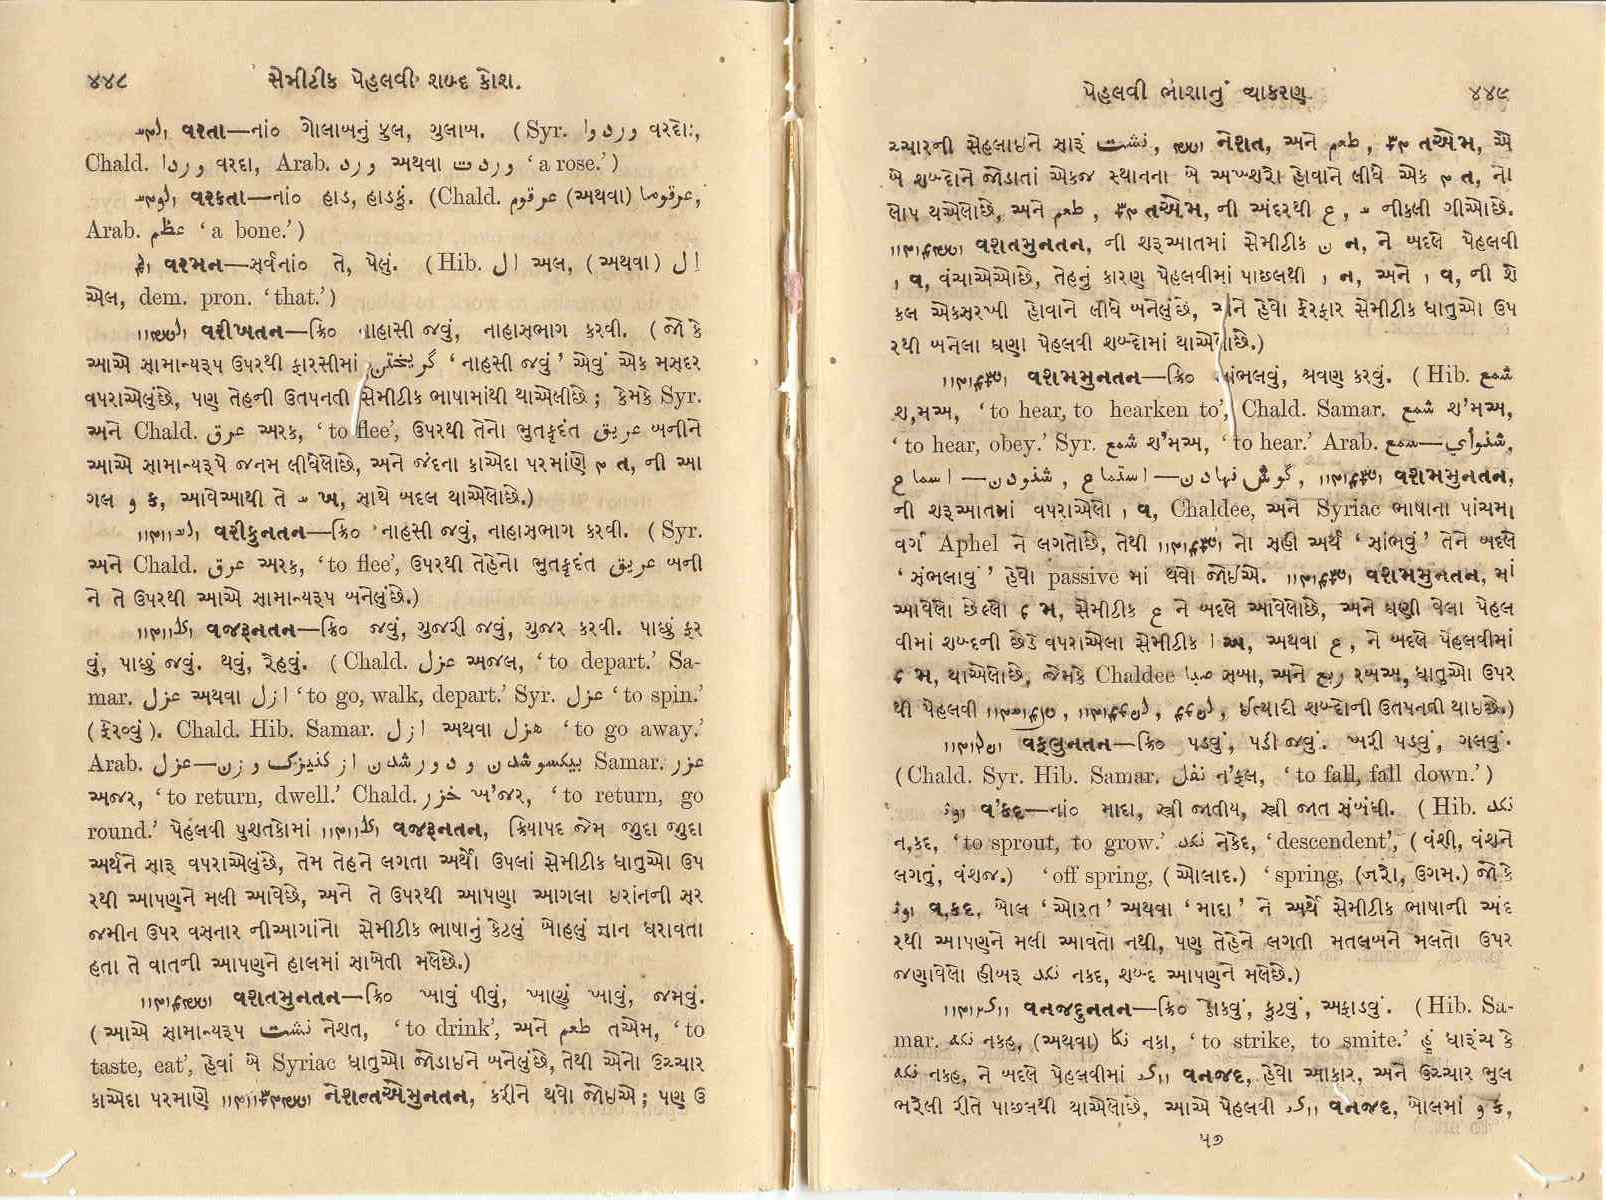 ૪૪૮ સેમીટીક પેહલવી શબ્દ કોશ.
વરતા—નાં૦ ગોલાબનું ફુલ, ગુલાબ. (Syr. وردوا વરદોઃ,
Chald. وردا વરદા, Arab. ورد અથવા وردت ‘a rose.’)
વરકતા—નાં૦ હાડ, હાડકું. (Chald. عرقوم (અથવા) عرقوما,
Arab. عظم ‘a bone.’)
વરમન—સર્વનાં૦ તે, પેલું. (Hib. ال અલ, (અથવા) ال
એલ, dem. pron. ‘that.’)
વરીખતન—ક્રિ૦ નાહાસી જવું, નાહાસભાગ કરવી. (જો કે
આએ સામાન્યરૂપ ઉપરથી ફારસીમાં گریختن ‘નાહસી જવું’ એવું એક મસદર
વપરાએલુંછે, પણ તેહની ઉતપનતી સેમીટીક ભાષામાંથી થાએલીછે; કેમકે Syr.
અને Chald. عرق અરક, ‘to flee’, ઉપરથી તેનો ભુતકૃદંત عریق બનીને
આએ સામાન્યરૂપે જનમ લીધેલોછે, અને જંદના કાએદા પરમાંણે ત, ની આ
ગલ و ક, આવેઆથી તે خ ખ, સાથે બદલ થાએલોછે.)
વરીકુનતન—ક્રિ૦ નાહસી જવું, નાહાસભાગ કરવી. (Syr.
અને Chald. عرق અરક, ‘to flee’, ઉપરથી તેહેનો ભુતકૃદંત عریق બની
ને તે ઉપરથી આએ સામાન્યરૂપ બનેલુંછે.)
વજરૂનતન—ક્રિ૦ જવું, ગુજરી જવું, ગુજર કરવી. પાછું ફર
વું, પાછું જવું. થવું, રેહવું. (Chald. عزل અજલ, ‘to depart.’ Sa-
mar. عزل અથવા ازل ‘to go, walk, depart.’ Syr. عزل ‘to spin.’
(ફેરવ્વું). Chald. Hib. Samar. ازل અથવા هزل ‘to go away.’
Arab. عزل—بیکسو شدن و دور شدن از کنیزک و زن Samar. عزر
અજર, ‘to return, dwell.’ Chald. خزر ખ’જર, ‘to return, go
round.’ પેહલવી પુશતકોમાં વજરૂનતન, ક્રિયાપદ જેમ જુદા જુદા
અર્થને સારૂ વપરાએલુંછે, તેમ તેહને લગતા અર્થો ઉપલાં સેમીટીક ધાતુઓ ઉપ
રથી આપણને મલી આવેછે, અને તે ઉપરથી આપણા આગલા ઇરાંનની સર
જમીન ઉપર વસનાર નીઆગાંનો સેમીટીક ભાષાનું કેટલું બોહલું જ્ઞાન ધરાવતા
હતા તે વાતની આપણને હાલમાં સાબેતી મલેછે.)
વશતમુનતન—ક્રિ૦ ખાવું પીવું, ખાણું ખાવું, જમવું.
(આએ સામાન્યરૂપ نشت નેશત, ‘to drink’, અને طعم તએમ, ‘to
taste, eat’, હેવાં બે Syriac ધાતુઓ જોડાઇને બનેલુંછે, તેથી એનો ઉચ્ચાર
કાએદા પરમાણે નેશત્તએમુનતન, કરીને થવો જોઇએ; પણ ઉ
પેહલવી ભાશાનું વ્યાકરણ ૪૪૯
ચ્ચારની સેહલાઇને સારૂં نشت, નેશત, અને طعم, તએમ, એ
બે શબ્દોને જોડાતાં એકજ સ્થાનના બે અખ્શરો હોવાને લીધે એક ત, નો
લોપ થએલોછે, અને طعم, તએમ, ની અંદરથી ع, નીકલી ગીઓછે.
વશતમુનતન, ની શરૂઆતમાં સેમીટીક ن ન, ને બદલે પેહલવી
વ, વંચાએઓછે, તેહનું કારણ પેહલવીમાં પાછલથી ન, અને વ, ની શે
કલ એકસરખી હોવાને લીધે બનેલુંછે, અને હેવો ફેરફાર સેમીટીક ધાતુઓ ઉપ
રથી બનેલા ઘણા પેહલવી શબ્દોમાં થાએલોછે.)
વશમમુનતન—ક્રિ૦ સાંભલવું, શ્રવણ કરવું. (Hib. شمع
શ,મઅ, ‘to hear, to hearken to’, Chald. Samar. شمع શ’મઅ,
‘to hear, obey.’ Syr. شمع શ’મઅ, ‘to hear.’ Arab. سمع—شنواي,
گوش نهادن—استماع, شنودن—اسماع, વશમમુનતન,
ની શરૂઆતમાં વપરાએલો વ, Chaldee, અને Syriac ભાષાના પાંચમા
વર્ગ Aphel ને લગતોછે, તેથી નો સહી અર્થ ‘સાંભવું’ તેને બદલે
‘સંભલાવું’ હેવો passive માં થવો જોઇએ. વશમમુનતન, માં
આવેલો છેલ્લો મ, સેમીટીક ع ને બદલે આવેલોછે, અને ઘણી વેલા પેહલ
વીમાં શબ્દની છેડે વપરાએલા સેમીટીક ا અ, અથવા ع, ને બદલે પેહલવીમાં
મ, થાએલોછે, જેમકે Chaldee صبا સબા, અને ربع રબઅ, ધાતુઓ ઉપર
થી પેહલવી ઈત્યાદી શબ્દોની ઉતપનતી થાઇછે.)
વફલુનતન—ક્રિ૦ પડવું, પડી જવું. ખરી પડવું, ગલવું.
(Chald. Syr. Hib. Samar. نفل ન’ફલ, ‘to fall, fall down.’)
વ’કદ—નાં૦ માદા, સ્ત્રી જાતીય, સ્ત્રી જાત સંબંધી. (Hib. نکد
ન,કદ, ‘to sprout, to grow.’ نکد નેકેદ, ‘descendent’, (વંશી, વંશને
લગતું, વંશજ.) ‘off spring, (ઓલાદ.) ‘spring, (જરો, ઉગમ.) જો કે
વ,કદ, બોલ ‘ઓરત’ અથવા ‘માદા’ ને અર્થે સેમીટીક ભાષાની અંદ
રથી આપણને મલી આવતો નથી, પણ તેહેને લગતી મતલબને મલતો ઉપર
જણાવેલો હીબરૂ نکد નકદ, શબ્દ આપણને મલેછે.)
વનજદુનતન—ક્રિ૦ ઠોકવું, કુટવું, અફાડવું. (Hib. Sa-
mar. نکه નકહ, (અથવા) نکا નકા, ‘to strike, to smite.’ હું ધારૂંચ કે
نکه નકહ, ને બદલે પેહલવીમાં વનજદ, હેવો આકાર, અને ઉચ્ચાર ભુલ
ભરેલી રીતે પાછલથી થાએલોછે, આએ પેહલવી વનજદ, બોલમાં و ક,
૫૭